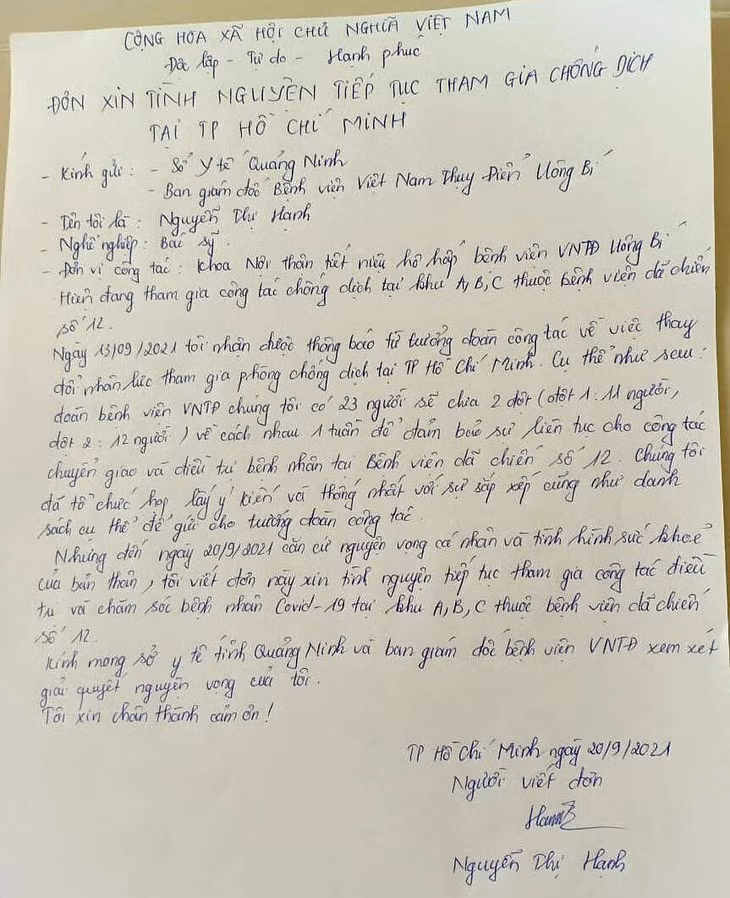 CỘNG HÒA XÃ HỘI CHỦ NGHĨA VIỆT NAM
Độc lập - Tự do - Hạnh phúc
ĐƠN XIN TÌNH NGUYỆN TIẾP TỤC THAM GIA CHỐNG DỊCH
TẠI TP HỒ CHÍ MINH
- Kính gửi : - Sở Y tế Quảng Ninh
- Ban giám đốc Bệnh viện Việt Nam Thụy Điển Uông Bí
- Tên tôi là : Nguyễn Thị Hạnh
- Nghề nghiệp : Bác sỹ.
- Đơn vị công tác : Khoa Nội thận tiết niệu hô hấp bệnh viện VNTĐ Uông Bí
Hiện đang tham gia công tác chống dịch tại khu A,B,C thuộc Bệnh viện dã chiến
số 12.
Ngày 13/09/2021 tôi nhận được thông báo từ trưởng đoàn công tác về việc thay
đổi nhân lực tham gia phòng chống dịch tại TP Hồ Chí Minh. Cụ thể như sau :
đoàn bệnh viện VNTĐ chúng tôi có 23 người sẽ chia 2 đợt (đợt 1 : 11 người,
đợt 2 : 12 người) về cách nhau 1 tuần để đảm bảo sự liên tục cho công tác
chuyển giao và điều trị bệnh nhân tại Bệnh viện dã chiến số 12. Chúng tôi
đã tổ chức họp lấy ý kiến và thống nhất với sự sắp xếp cũng như danh
sách cụ thể để gửi cho trưởng đoàn công tác.
Nhưng đến ngày 20/9/2021 căn cứ nguyện vọng cá nhân và tình hình sức khoẻ
của bản thân, tôi viết đơn này xin tình nguyện tiếp tục tham gia công tác điều
trị và chăm sóc bệnh nhân Covid-19 tại khu A,B,C thuộc bệnh viện dã chiến
số 12.
Kính mong sở y tế tỉnh Quảng Ninh và ban giám đốc bệnh viện VNTĐ xem xét
giải quyết nguyện vọng của tôi.
Tôi xin chân thành cảm ơn !
TP Hồ Chí Minh ngày 20/9/2021
Người viết đơn
Hạnh
Nguyễn Thị Hạnh